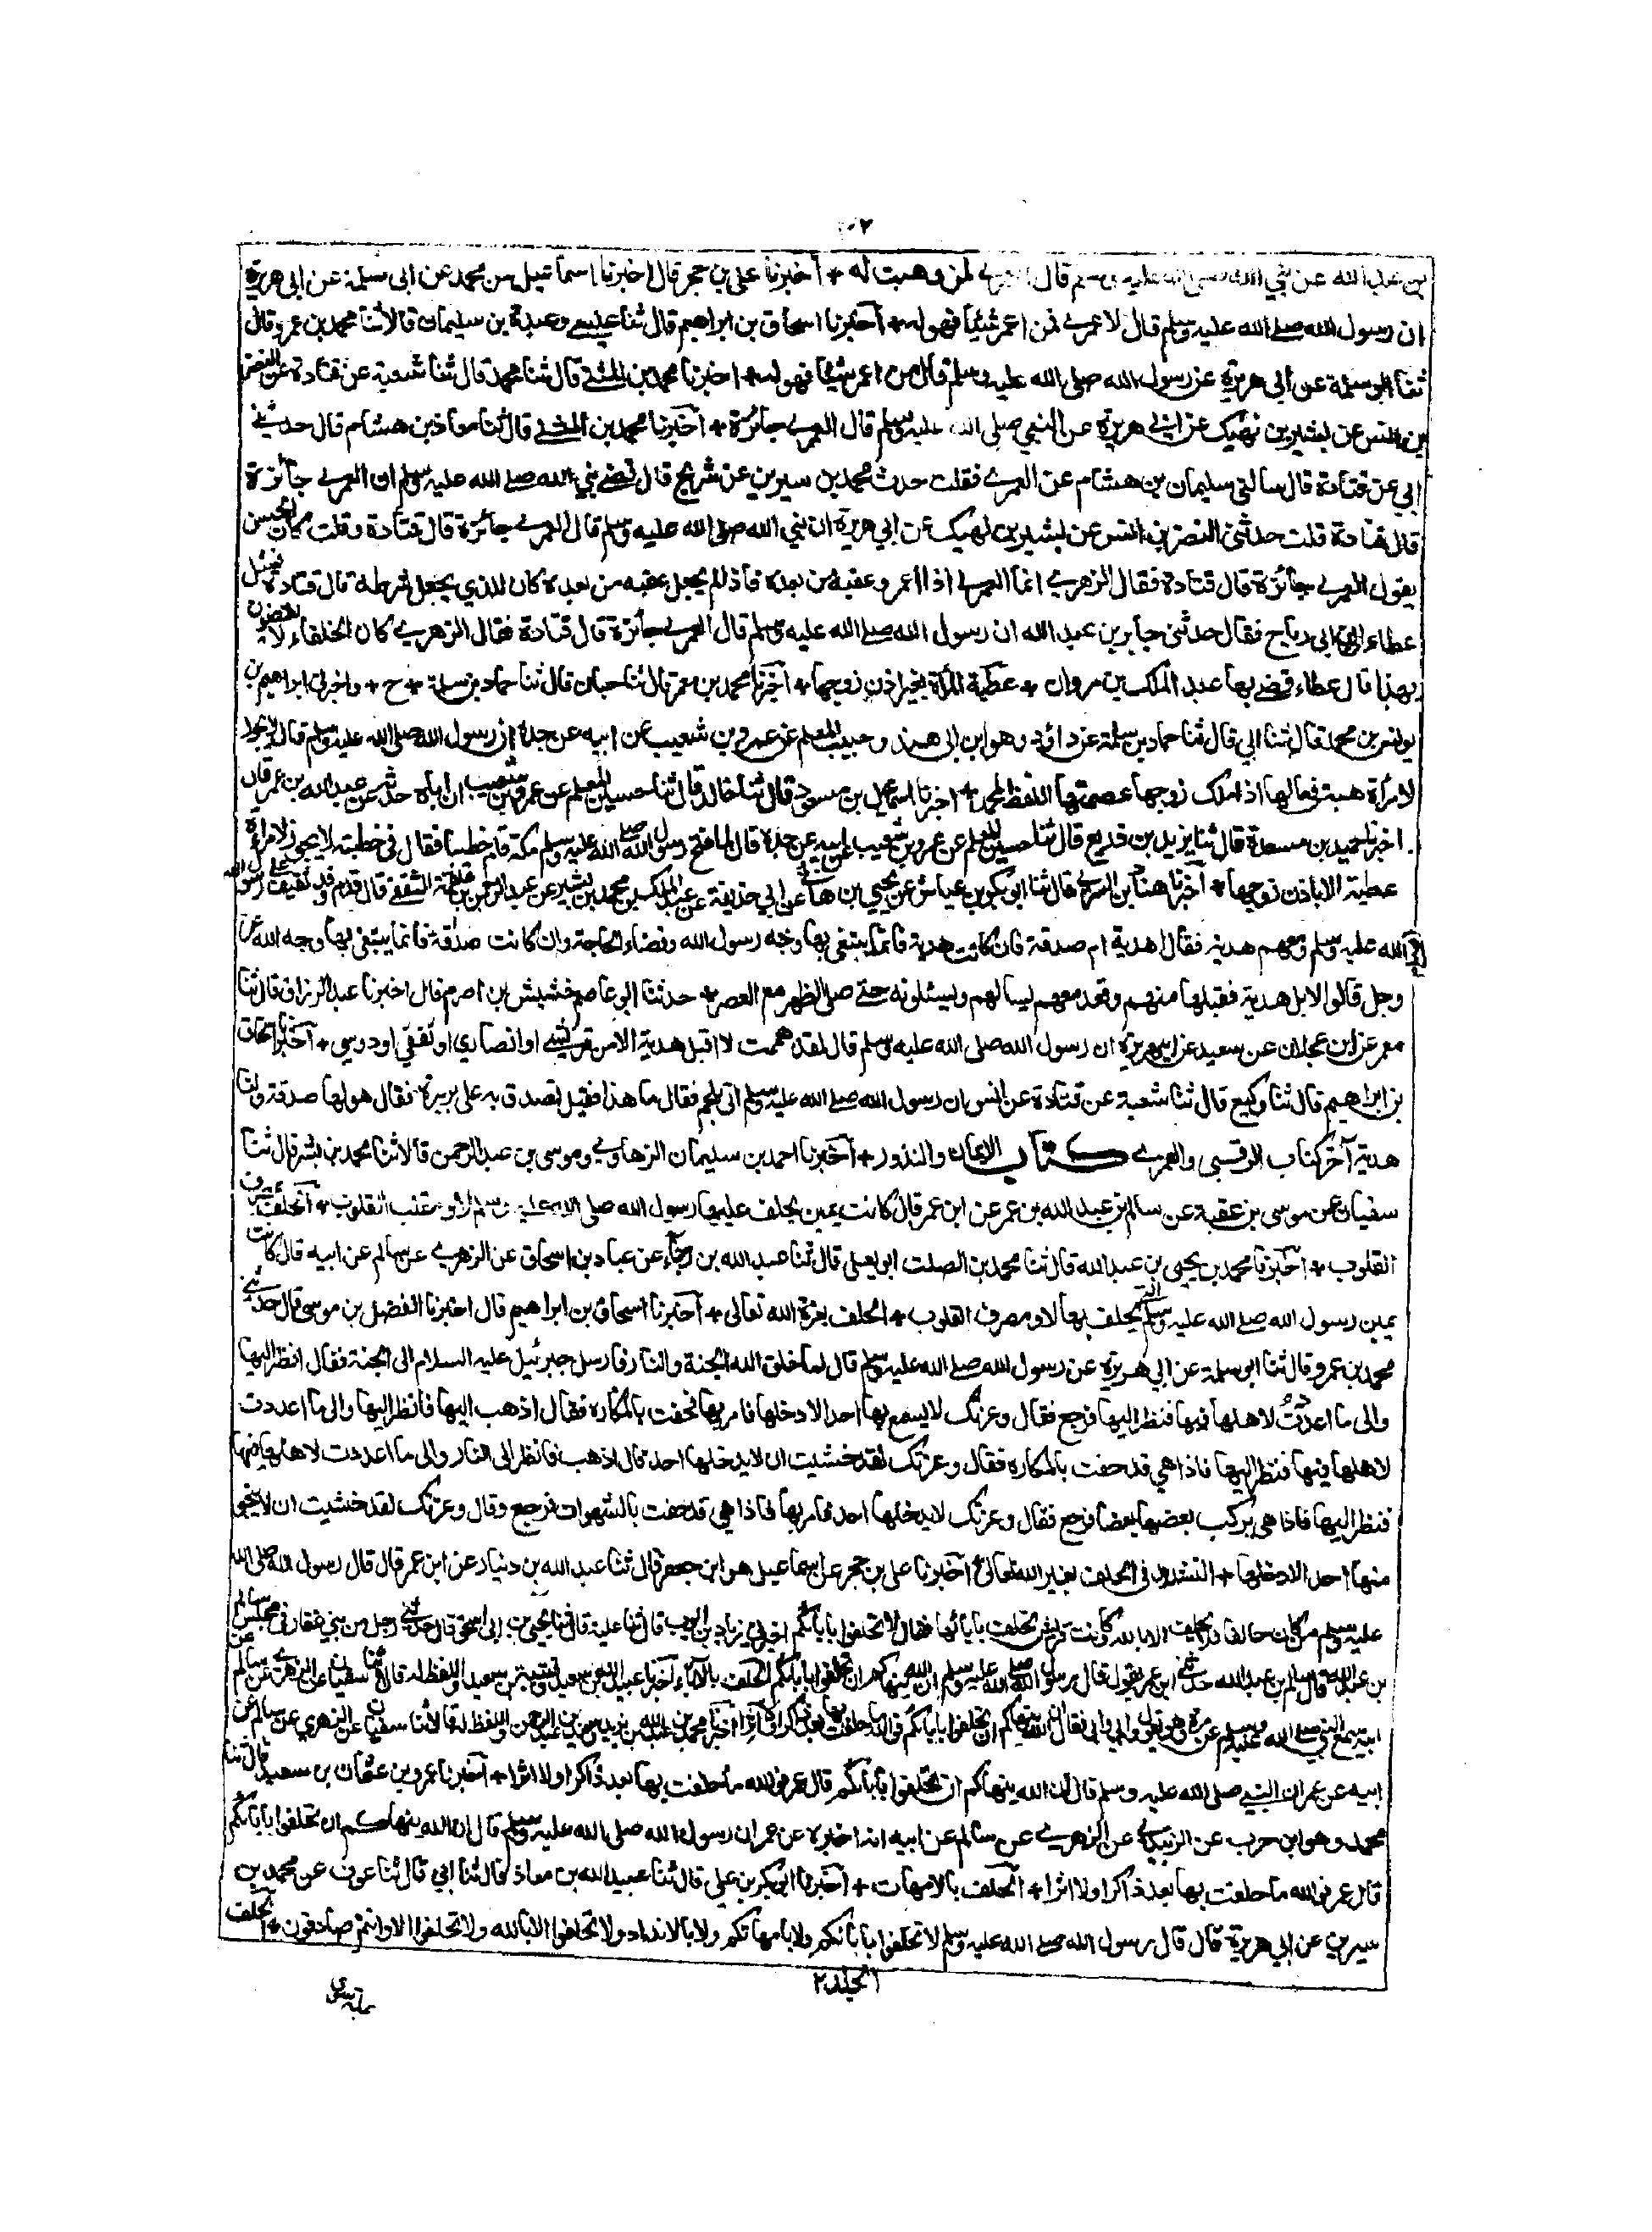 بن عبد الله عن نبي الله صلى الله عليه وسلم قال لمن وهبت له + أخبرنا علي بن حجر قال اخبرنا اسماعيل عن محمد عن ابى سلمة عن ابى هريرة
ان رسول الله صلے الله عليه وسلم قال لا عمرے فمن اعمر شيئا فهو له + أخبرنا اسحاق بن ابراهيم قال ثنا عيسے وعبدة بن سليمان قالا ثنا محمد بن عمرو قال
ثنا ابو سلمة عن ابى هريرة عن رسول الله صلى الله عليه وسلم قال من اعمر شيئا فهو له + اخبرنا محمد بن المثنے قال ثنا محمد قال ثنا شعبة عن قتادة عن النضر
بن انس عن بشير بن نهيك عن ابي هريرة عن النبي صلى الله عليه وسلم قال العمرے جائزة + أخبرنا محمد بن المثنے قال ثنا معاذ بن هشام قال حدثنے
ابي عن قتادة قال سالني سليمان بن هشام عن العمرے فقلت حدث محمد بن سيرين عن شريح قال قضے نبي الله صلے الله عليه وسلم ان العمرے جائزة
قال قتادة قلت حدثني النضر بن انس عن بشير بن نهيك عن ابي هريرة ان نبي الله صلى الله عليه وسلم قال العمرے جائزة قال قتادة وقلت كان الحسن
يقول العمرے جائزة قال قتادة فقال الزهرے انما العمرے اذا اعمر وعقبه من بعده فاذا لم يجعل عقبه من بعده كان للذي يجعل شرطه قال قتادة فسئل
عطاء بن ابى رباح فقال حدثني جابر بن عبد الله ان رسول الله صلے الله عليه وسلم قال العمرے جائزة قال قتادة فقال الزهرے كان الخلفاء لا يقضون
بهذا قال عطاء قضے بها عبد الملك بن مروان + عطية المرأة بغير اذن زوجها + أخبرنا محمد بن معمر قال ثنا حبان قال ثنا حماد بن سلمة + ح + واخبرني ابراهيم بن
يونس بن محمد قال ثنا ابي قال ثنا حماد بن سلمة عن داؤد وهو ابن ابى هند وحبيب المعلم عن عمرو بن شعيب عن ابيه عن جده ان رسول الله صلى الله عليه وسلم قال لا يجوز
لامرأة هبة في مالها اذا ملك زوجها عصمتها اللفظ لمحمد + اخبرنا اسماعيل بن مسعود قال ثنا خالد قال ثنا حسين المعلم عن عمرو بن شعيب ان اباه حدثه عن عبد الله بن عمرو قال
اخبرنا حميد بن مسعدة قال ثنا يزيد بن زريع قال ثنا حسين المعلم عن عمرو بن شعيب عن ابيه عن جده قال لما فتح رسول الله صلى الله عليه وسلم مكة قام خطيبا فقال في خطبته لا يجوز لامرأة
عطية الا باذن زوجها + أخبرنا هناد بن السرى قال ثنا ابو بكر بن عياش عن يحيي بن هانئ عن ابي حذيفة عن عبد الملك بن محمد بن بشير عن عبد الرحمن بن علقمة الثقفے قال قدم وفد ثقيف على رسول الله
صلى الله عليه وسلم ومعهم هدية فقال اهدية ام صدقة فان كانت هدية فانما يبتغى بها وجه رسول الله وقضاء الحاجة وان كانت صدقة فانما يبتغى بها وجه الله عز
وجل قالوا لا بل هدية فقبلها منهم وقعد معهم يسالهم ويسئلونه حتے صلى الظهر مع العصر + حدثنا ابو عاصم خشيش بن اصرم قال اخبرنا عبد الرزاق قال ثنا
معمر عن ابن عجلان عن سعيد عن ابى هريرة ان رسول الله صلى الله عليه وسلم قال لقد هممت لا اقبل هدية الا من قرشے او انصاري او ثقفي او دوسي + أخبرنا اسحاق
بن ابراهيم قال ثنا وكيع قال ثنا شعبة عن قتادة عن انس ان رسول الله صلے الله عليه وسلم اتى بلحم فقال ما هذا فقيل تصدق به على بريرة فقال هو لها صدقة ولنا
هدية آخر كتاب الرقبى والعمرے كتاب الايمان والنذور + أخبرنا احمد بن سليمان الرهاوي وموسى بن عبد الرحمن قالا ثنا محمد بن بشر قال ثنا
سفيان عن موسى بن عقبة عن سالم بن عبد الله بن عمر عن ابن عمر قال كانت يمين يحلف عليها رسول الله صلى الله عليه وسلم لا ومقلب القلوب + الحلف بمصرف
القلوب + أخبرنا محمد بن يحيى بن عبد الله قال ثنا محمد بن الصلت ابو يعلى قال ثنا عبد الله بن رجاء عن عباد بن اسحاق عن الزهرے عن سالم عن ابيه قال كانت
يمين رسول الله صلے الله عليه وسلم التي يحلف بها لا ومصرف القلوب + الحلف بعزة الله تعالى + أخبرنا اسحاق بن ابراهيم قال اخبرنا الفضل بن موسى قال حدثنے
محمد بن عمرو قال ثنا ابو سلمة عن ابي هريرة عن رسول الله صلے الله عليه وسلم قال لما خلق الله الجنة والنار فارسل جبرئيل عليه السلام الى الجنة فقال انظر اليها
والى ما اعددت لاهلها فيها فنظر اليها فرجع فقال وعزتك لا يسمع بها احد الا دخلها فامر بها فحفت بالمكاره فقال اذهب اليها فانظر اليها والى ما اعددت
لاهلها فيها فنظر اليها فاذا هي قد حفت بالمكاره فقال وعزتك لقد خشيت ان لا يدخلها احد قال اذهب فانظر الى النار والى ما اعددت لاهلها فيها
فنظر اليها فاذا هى يركب بعضها بعضا فرجع فقال وعزتك لا يدخلها احد فامر بها فاذا هي قد حفت بالشهوات فرجع وقال وعزتك لقد خشيت ان لا ينجو
منها احد الا دخلها + التشديد فى الحلف بغير الله تعالى + أخبرنا على بن حجر عن اسماعيل هو ابن جعفر قال ثنا عبد الله بن دينار عن ابن عمر قال قال رسول الله صلى الله
عليه وسلم من كان حالفا فلا يحلف الا بالله وكانت قريش تحلف بابائها فقال لا تحلفوا بابائكم اخبرني زياد بن ايوب قال ثنا علية قال ثنا يحيى بن ابى اسحق قال حدثنے رجل من بني غفار في مجلس سالم
بن عبد الله قال سالم بن عبد الله حدثنے ابن عمر يقول قال رسول الله صلى الله عليه وسلم ان الله ينهاكم ان تحلفوا بابائكم الحلف بالآباء أخبرنا عبيد الله بن سعيد وقتيبة بن سعيد واللفظ له قالا ثنا سفيان عن الزهرے عن سالم عن
ابيه سمع النبي صلے الله عليه وسلم عمر مرة وهو يقول وابي وابي فقال ان الله ينهاكم ان تحلفوا بابائكم فوالله ما حلفت بها بعد ذاكرا ولا آثرا أخبرنا محمد بن عبد الله بن يزيد وسعيد بن عبد الرحمن واللفظ له قالا ثنا سفيان عن الزهري عن سالم عن
ابيه عن عمر ان النبے صلى الله عليه وسلم قال ان الله ينهاكم ان تحلفوا بابائكم قال عمر فوالله ما حلفت بها بعد ذاكرا ولا اثرا + أخبرنا عمرو بن عثمان بن سعيد قال ثنا
محمد وهو ابن حرب عن الزبيدے عن الزهرے عن سالم عن ابيه انه اخبره عن عمر ان رسول الله صلى الله عليه وسلم قال ان الله ينهاكم ان تحلفوا بابائكم
قال عمر فوالله ما حلفت بها بعد ذاكرا ولا اثرا + الحلف بالامهات + أخبرنا ابو بكر بن علي قال ثنا عبيد الله بن معاذ قال ثنا ابي قال ثنا عوف عن محمد بن
سيرين عن ابي هريرة قال قال رسول الله صلے الله عليه وسلم لا تحلفوا بابائكم ولا بامهاتكم ولا بالانداد ولا تحلفوا الا بالله ولا تحلفوا الا وانتم صادقون + الحلف
الجلد ٢